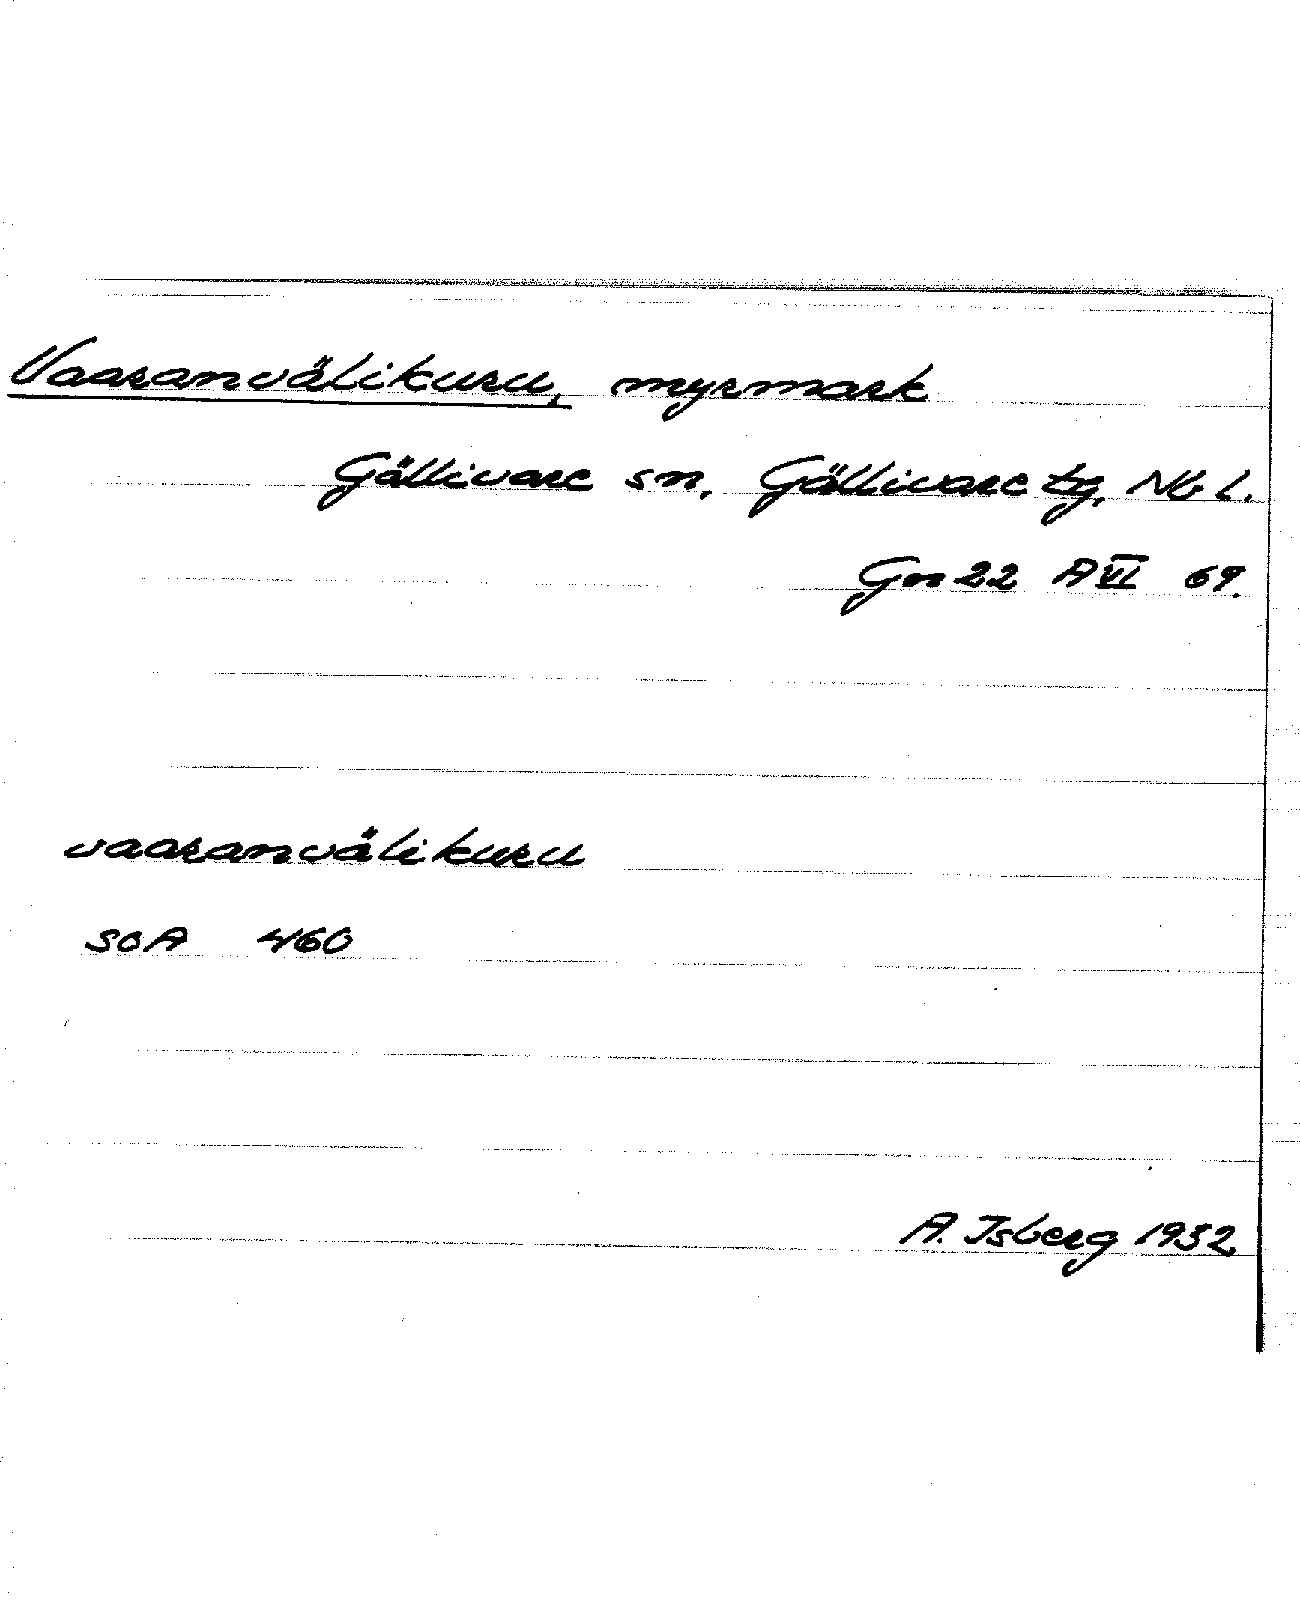 Vaaranvälikuru, myrmark
Gällivare sn, Gällivare tg, Nb l.
Gm 22 A VI 69.
vaaranvälikuru
SOA 460
A. Isberg 1932